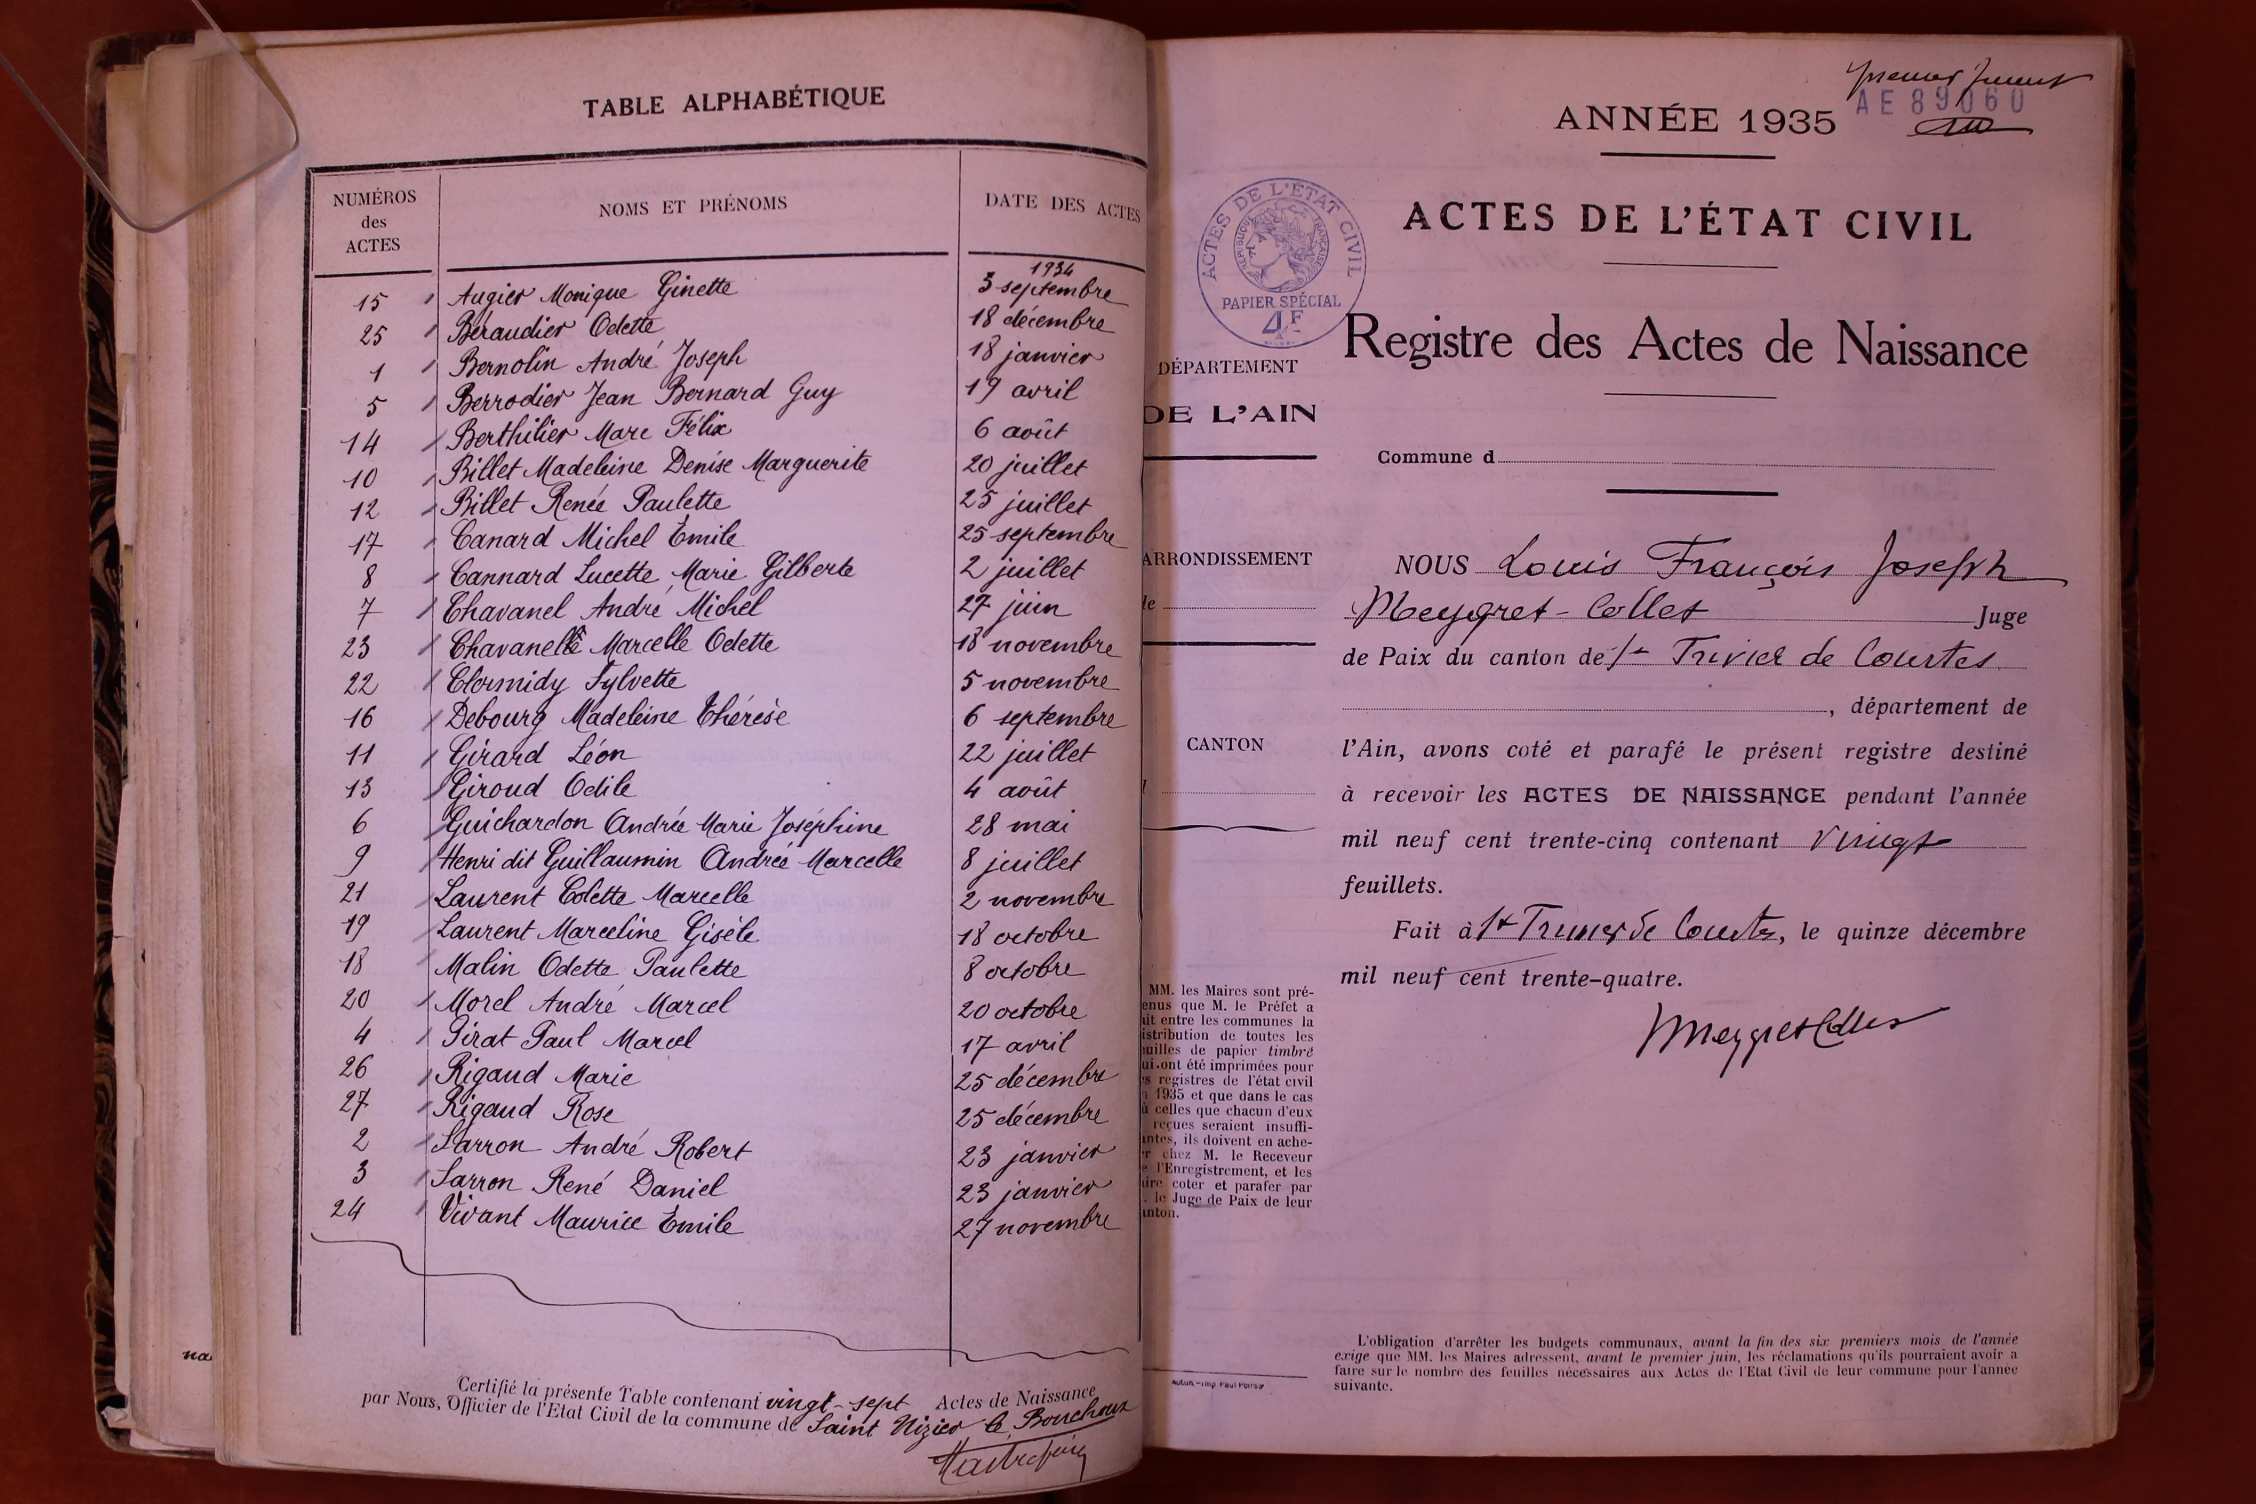 TABLE ALPHABÉTIQUE
NUMÉROS
des
ACTES
NOMS ET PRÉNOMS
DATE DES ACTES
1934
15 Augier Monique Ginette 3 septembre
25 Béraudier Odette 18 décembre
1 Bernolin André Joseph 18 janvier
5 Berrodier Jean Bernard Guy 19 avril
14 Berthilier Marc Félix 6 août
10 Billet Madeleine Denise Marguerite 20 juillet
12 Billet Renée Paulette 25 juillet
17 Canard Michel Émile 25 septembre
8 Cannard Lucette Marie Gilberte 2 juillet
7 Chavanel André Michel 27 juin
23 Chavanelle Marcelle Odette 18 novembre
22 Clormidy Sylvette 5 novembre
16 Debourg Madeleine Thérèse 6 septembre
11 Girard Léon 22 juillet
13 Giroud Odile 4 août
6 Guichardon Andrée Marie Joséphine 28 mai
9 Henri dit Guillaumin Andrée Marcelle 8 juillet
21 Laurent Colette Marcelle 2 novembre
19 Laurent Marceline Gisèle 18 octobre
18 Malin Odette Paulette 8 octobre
20 Morel André Marcel 20 octobre
4 Pirat Paul Marcel 17 avril
26 Rigaud Marie 25 décembre
27 Rigaud Rose 25 décembre
2 Sarron André Robert 23 janvier
3 Sarron René Daniel 23 janvier
24 Vivant Maurice Émile 27 novembre
Certifié la présente Table contenant vingt-sept Actes de Naissance
par Nous, Officier de l'Etat Civil de la commune de Saint Nizier le Bouchoux
premier
AE 89060
ANNÉE 1935
ACTES DE L'ÉTAT CIVIL
RÉPUBLIQUE FRANÇAISE
PAPIER SPÉCIAL
4F
ACTES DE L'ÉTAT CIVIL
Registre des Actes de Naissance
DÉPARTEMENT
DE L'AIN
Commune d
ARRONDISSEMENT
CANTON
NOUS Louis François Joseph
Meygret-Collet Juge
de Paix du canton de St Trivier de Courtes
, département de
l'Ain, avons coté et parafé le présent registre destiné
à recevoir les ACTES DE NAISSANCE pendant l'année
mil neuf cent trente-cinq contenant vingt
feuillets.
Fait à St Trivier de Courtes, le quinze décembre
mil neuf cent trente-quatre.
Meygret Collet
MM. les Maires sont pré-
enus que M. le Préfet a
ait entre les communes la
istribution de toutes les
euilles de papier timbré
ui ont été imprimées pour
es registres de l'état civil
1935 et que dans le cas
ù celles que chacun d'eux
reçues seraient insuffi-
antes, ils doivent en ache-
er chez M. le Receveur
e l'Enregistrement, et les
aire coter et parafer par
. le Juge de Paix de leur
anton.
L'obligation d'arrêter les budgets communaux, avant la fin des six premiers mois de l'année
exige que MM. les Maires adressent, avant le premier juin, les réclamations qu'ils pourraient avoir à
faire sur le nombre des feuilles nécessaires aux Actes de l'Etat Civil de leur commune pour l'année
suivante.